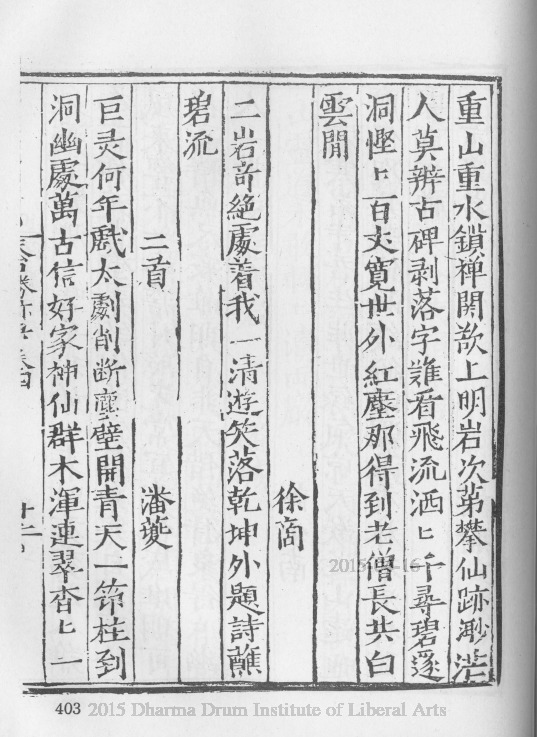 重山重水鎖禅関欲上明岩次苐攀仙跡渺茫
人莫辨古碑剥落字難看飛流洒匕千尋碧邃
洞慳匕百丈寛世外紅塵那得到老僧長共白
雲閒
徐啇
二岩奇絶處着我一清遊笑落乾坤外題詩蘸
碧流
二首
潘夔
巨灵何年戲太劇削断壁開青天一筇拄到
洞幽處萬古信好家神仙群木渾連翠杳匕二
十二
2015
403 2015 Dharma Drum Institute of Liberal Arts